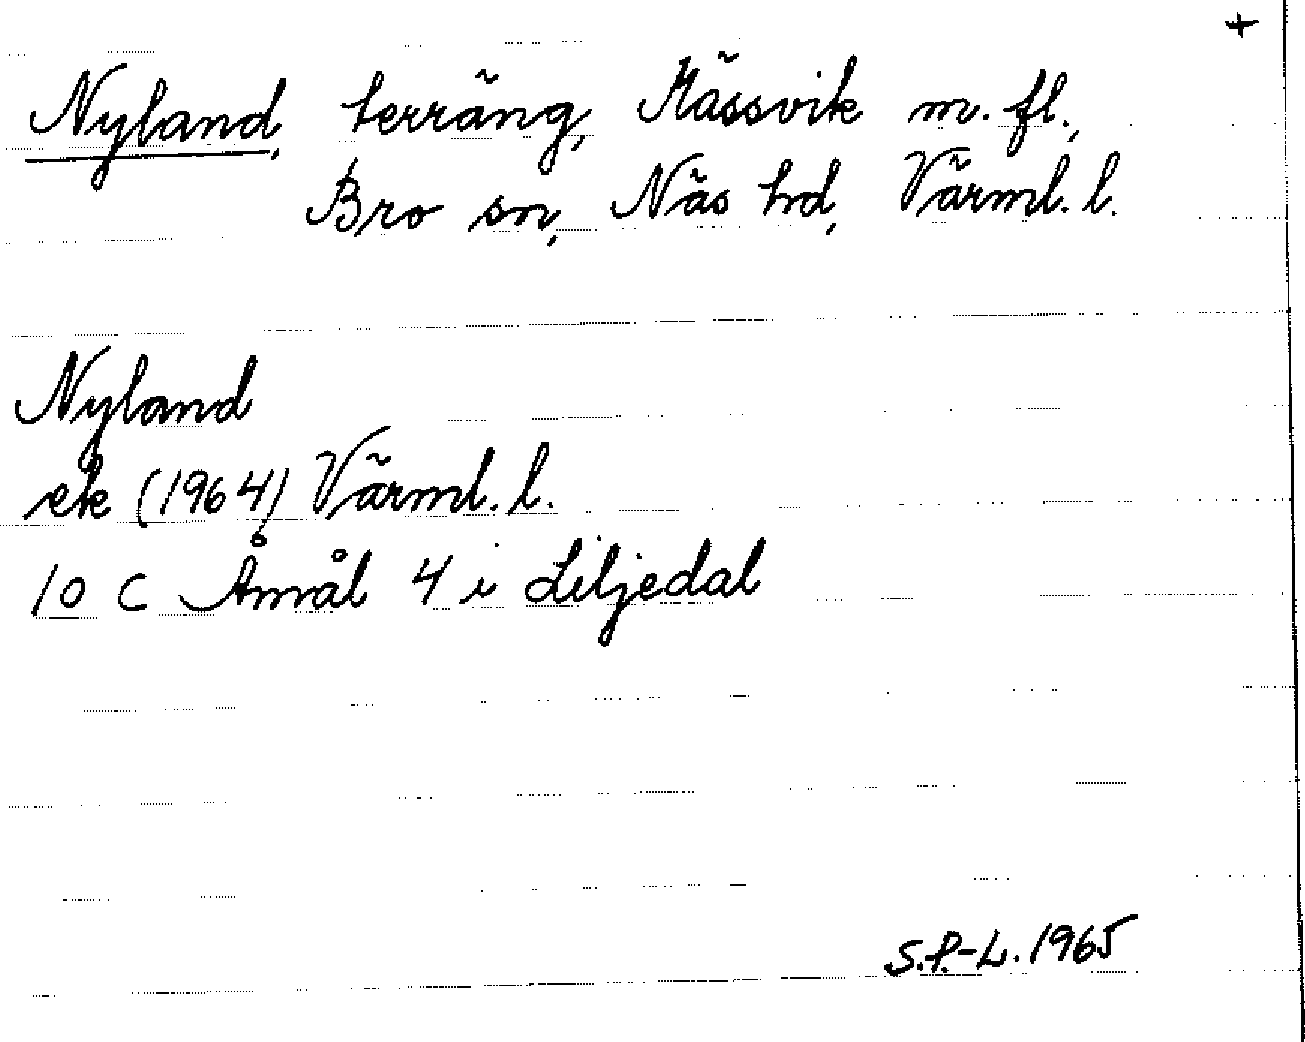 +
Nyland, terräng, Hässvik m. fl.,
Bro sn, Näs hd, Värml. l.
Nyland
ek (1964) Värml. l.
10 C Åmål 4 i Liljedal
S.P.-L. 1965